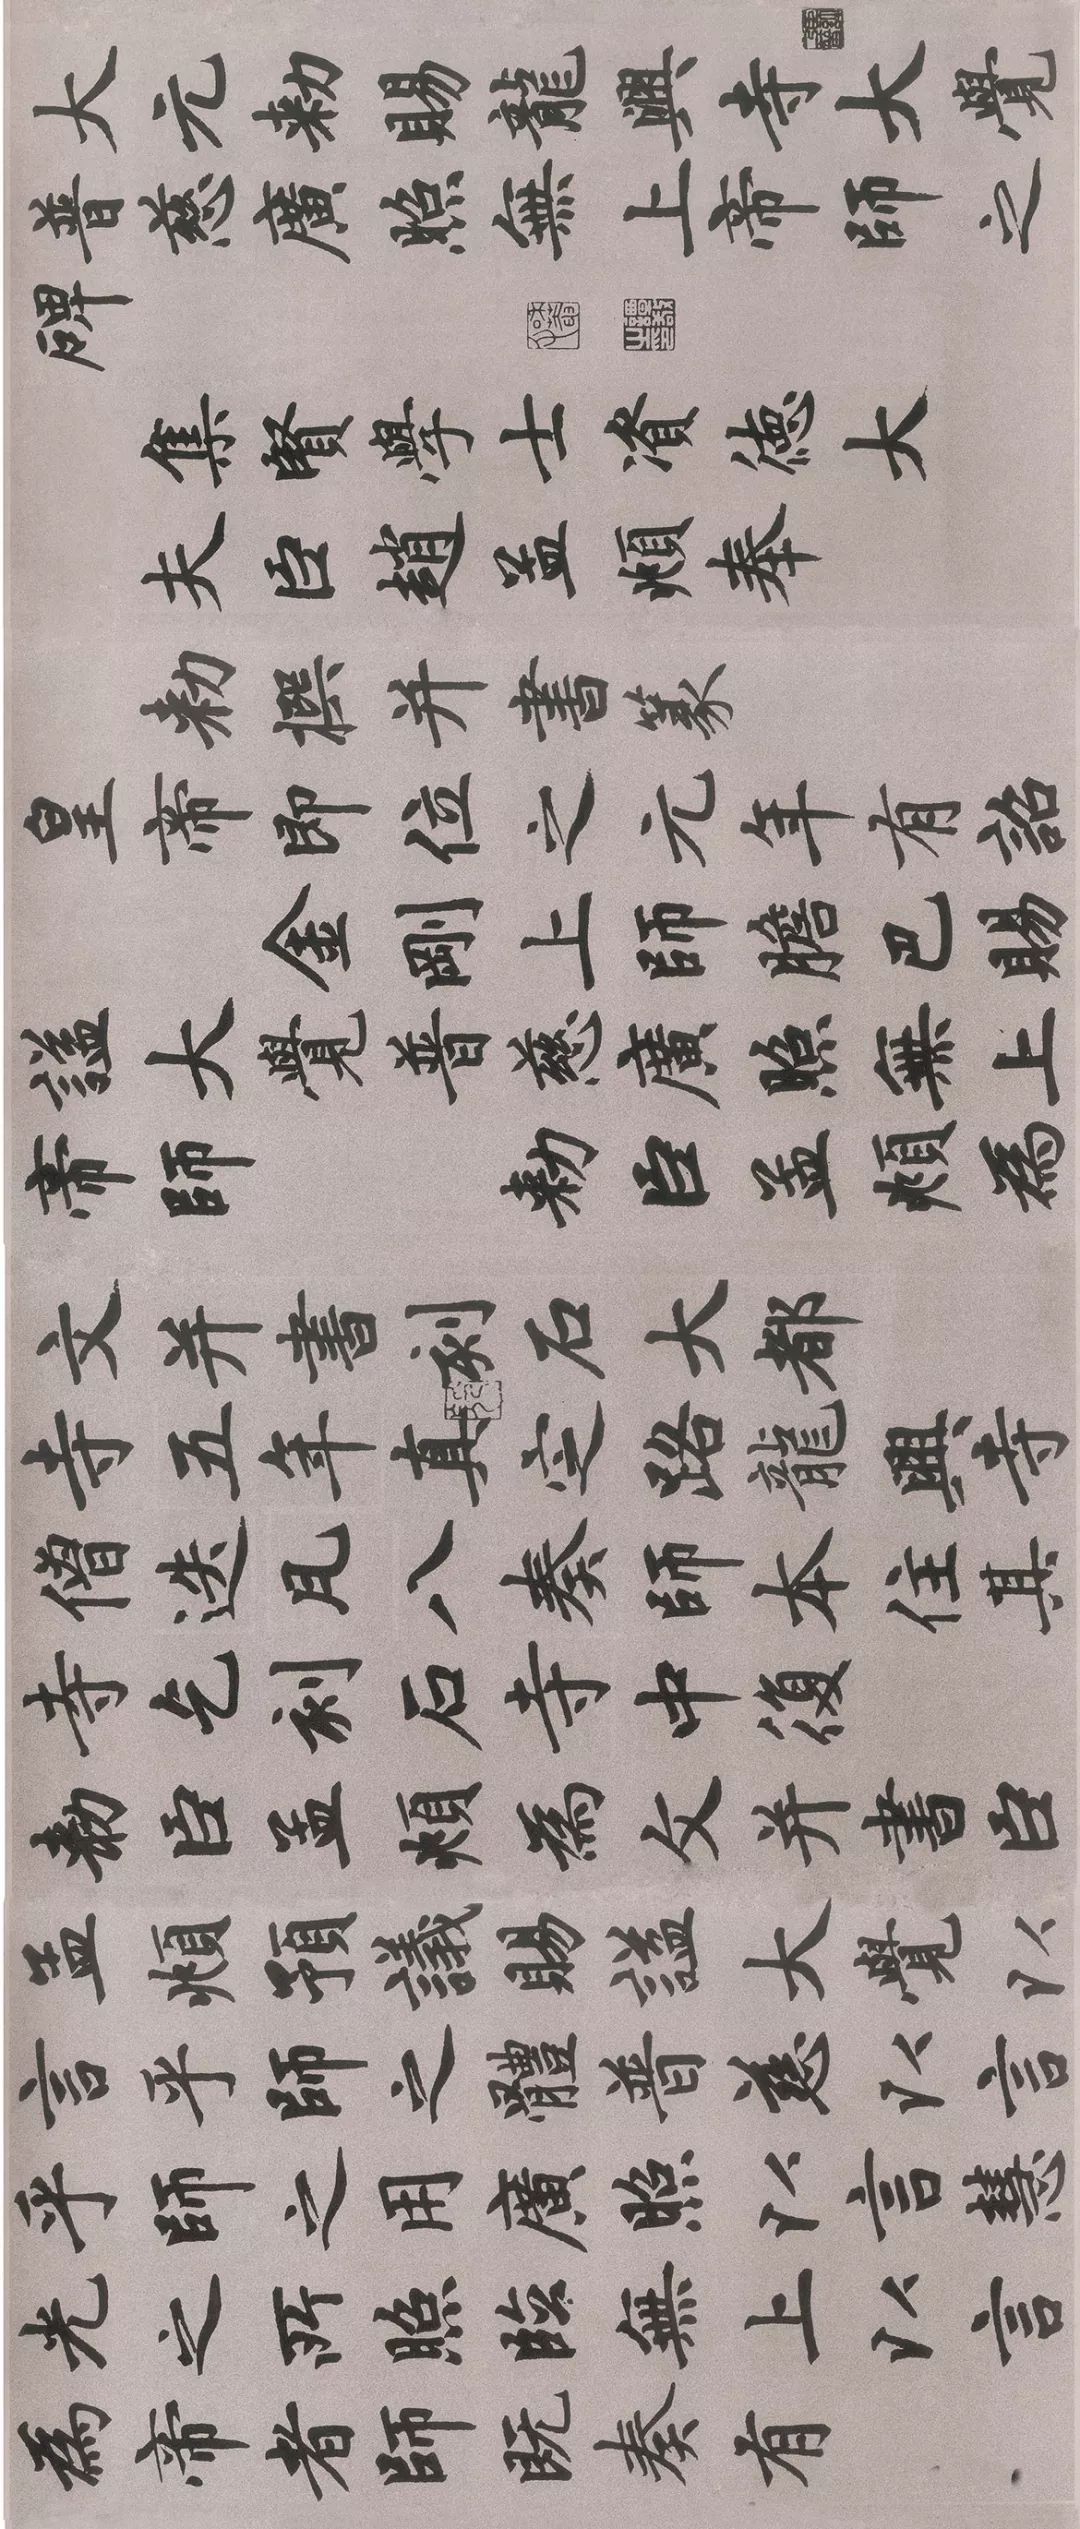 大元勅賜龍興寺大覺
普慈廣照無上帝師之
碑
集賢學士資德大
夫臣趙孟頫奉
勅撰并書篆
皇帝即位之元年有詔
金剛上師膽巴賜
謚大覺普慈廣照無上
帝師 勅臣孟頫為
文并書刻石大都
寺五年真定路龍興寺
僧迭凡八奏師本住其
寺乞刻石寺中復
勅臣孟頫為文并書臣
孟頫預議賜謚大覺以
言乎師之體普慈以言
乎師之用廣照以言慧
光之所照臨無上以言
為帝者師既奏有